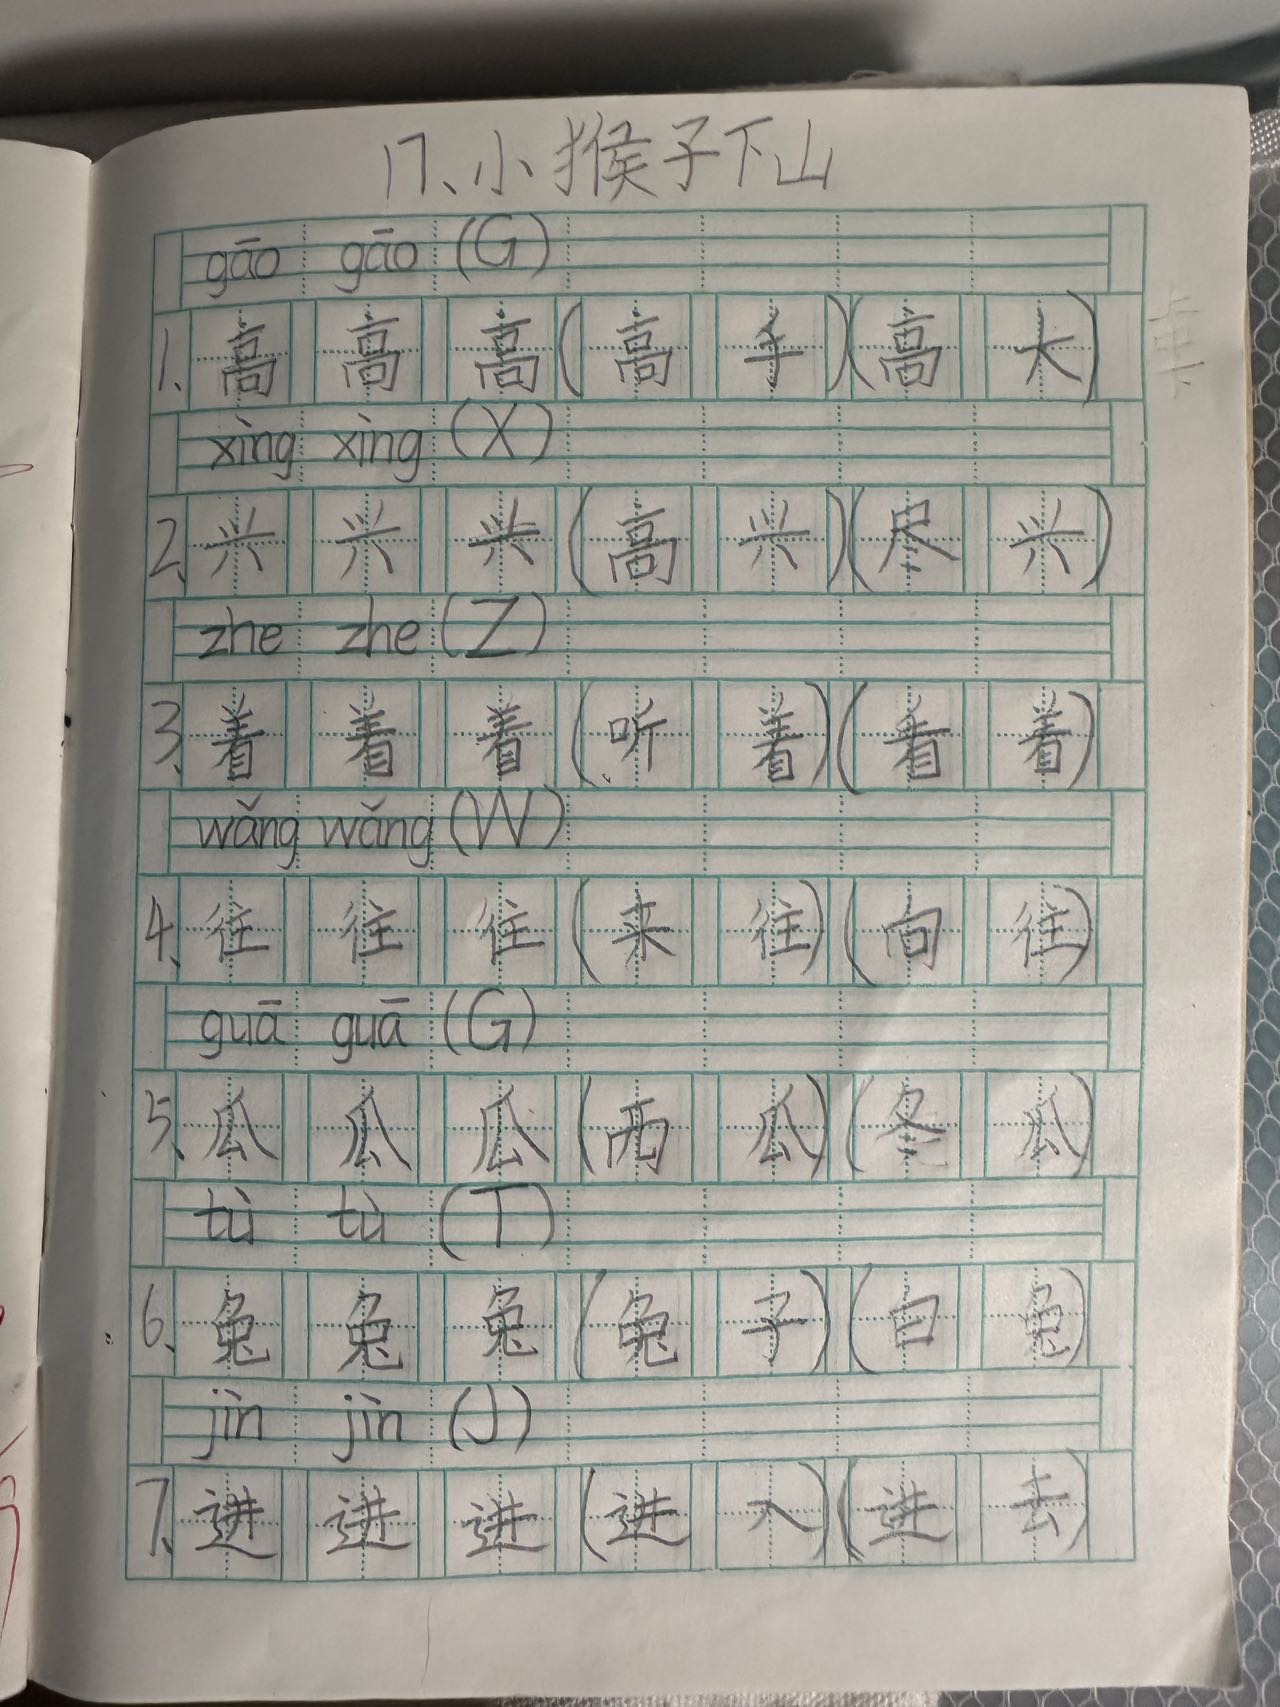 17、小猴子下山
gāo gāo (G)
1、高 高 高 (高 手)(高 大)
xìng xìng (X)
2、兴 兴 兴 (高 兴)(尽 兴)
zhe zhe (Z)
3、着 着 着 (听 着)(看 着)
wǎng wǎng (W)
4、往 往 往 (来 往)(向 往)
guā guā (G)
5、瓜 瓜 瓜 (西 瓜)(冬 瓜)
tù tù (T)
6、兔 兔 兔 (兔 子)(白 兔)
jìn jìn (J)
7、进 进 进 (进 入)(进 去)